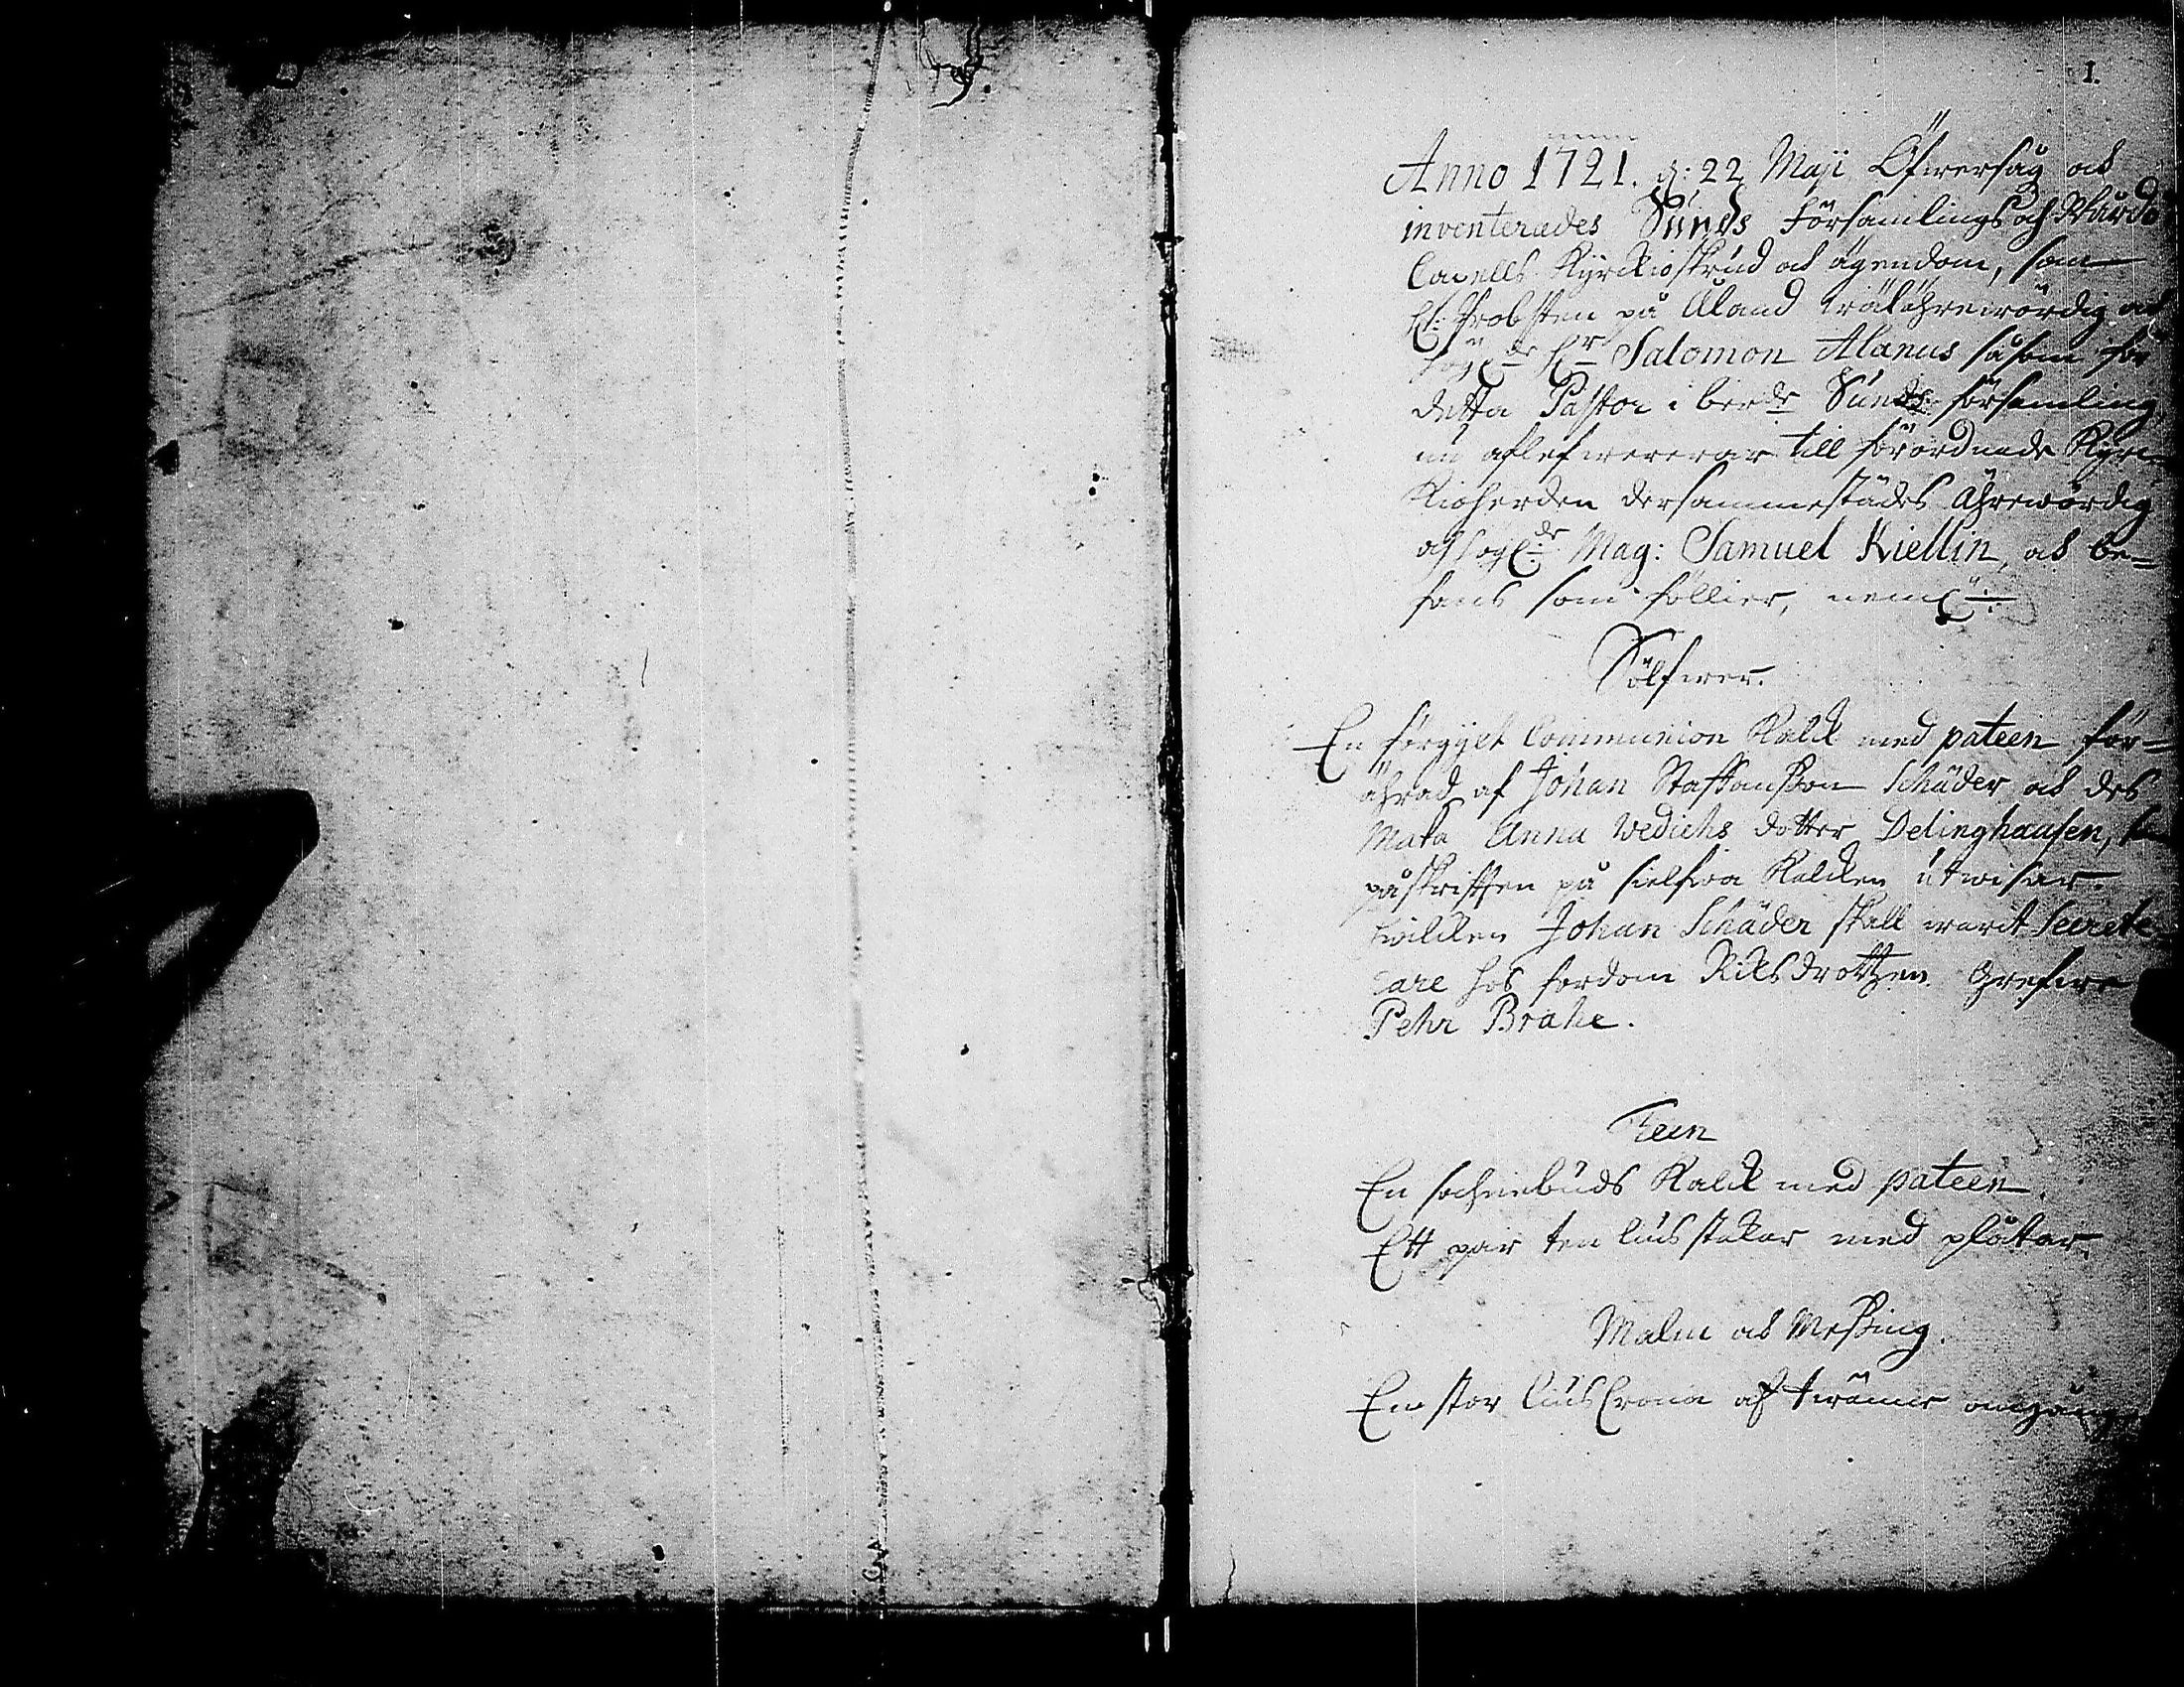 1.
Anno 1721. d: 22 Maji Öfwersåg och
inventerades Sunds Församlings och Wårdö
Capells Kyrckioskrud och ägendom, som
H: Probsten på Åland wälährewördig och
högl:de H:r Salomon Alanus såsom för
detta Pastor i ber:de Sunds församling
nu aflefwererar till förordnade Kyrc-
kioherden dersammestädes Ährewördig
och högl:de Mag: Samuel Kiellin, och be-
fans som föllier, neml:
Sölfwer.
En förgylt Communion Kalck med pateen för-
ährad af Johan Staffansson Schäder och des
Maka Anna Wedichs dotter Delinghausen,
påskrifften på sielfwa Kalcken utwisar.
hwilcken Johan Schäder skall warit Secrete-
rare hos fordom Riksdrottzen Grefwe
Pehr Brahe.
Teen
En sochnebuds Kalck med pateen.
Ett par ten liusstakar med plåtar.
Malm och Messing.
En stor liusCrona af twänne omgång